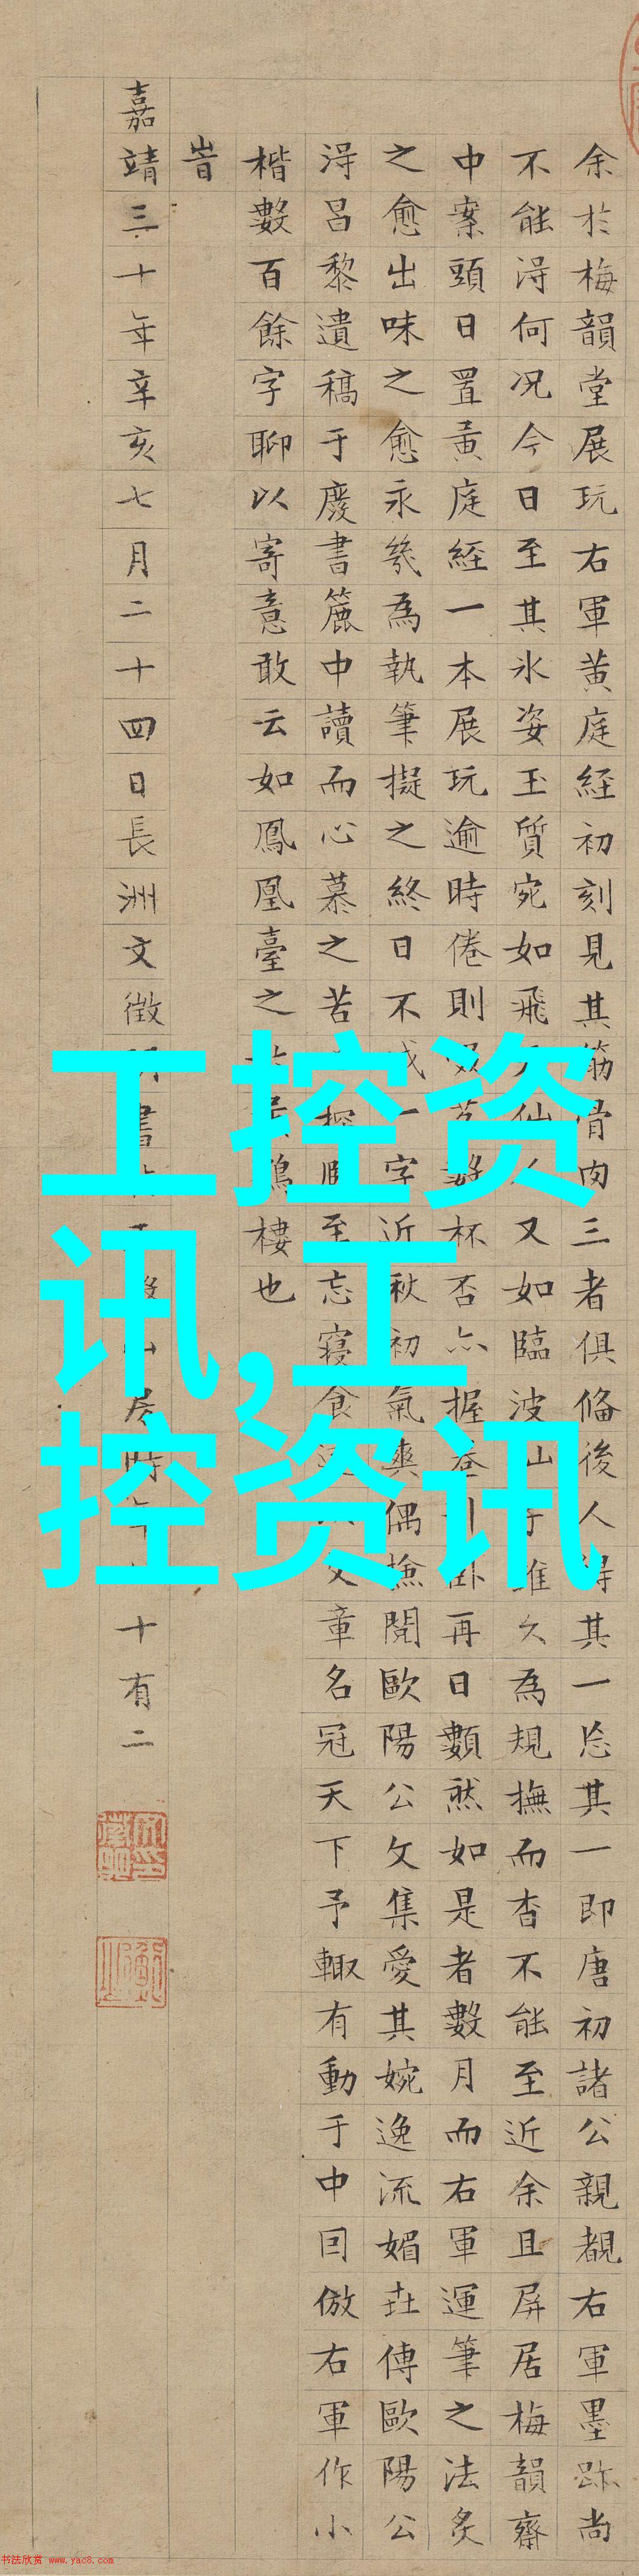 余於梅韻堂展玩右軍黄庭經初刻見其筋骨肉三者俱俻後人得其一忘其一即唐初諸公親覩右軍墨跡尚
不能淂何况今日至其氷姿玉質宛如飛天仙人又如臨波山雖久為規撫而杳不能至近余且屏居梅韻齋
中案頭日置黄庭經一本展玩逾時倦則啜茗數杯否亦握卷引臥再日數然如是者數月而右軍運筆之法炙
之愈出味之愈永幾為執筆擬之終日不成一字近秋初氣爽偶撿閱歐陽公文集愛其婉逸流媚世傳歐陽公
淂昌黎遺稿于廢書簏中讀而心慕之苦至忘寝食文章名冠天下予輙有動于中回倣右軍作小
楷數百餘字聊以寄意敢云如鳳凰臺之樓也
旹
嘉靖三十年辛亥七月二十四日長洲文徵明書十有二
工控资
讯,工
控资讯
书法欣赏 www.yac8.com